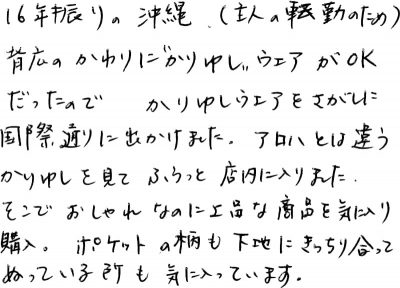 16年振りの沖縄、(主人の転勤のため)
背広のかわりに"かりゆし"ウェアがOK
だったので かりゆしウェアをさがしに
国際通りに出かけました。アロハとは違う
かりゆしを見て ふらっと店内に入りました。
そこでおしゃれなのに上品な商品を気に入り
購入。ポケットの柄も下地にきっちり合って
ぬっている所も気に入っています。